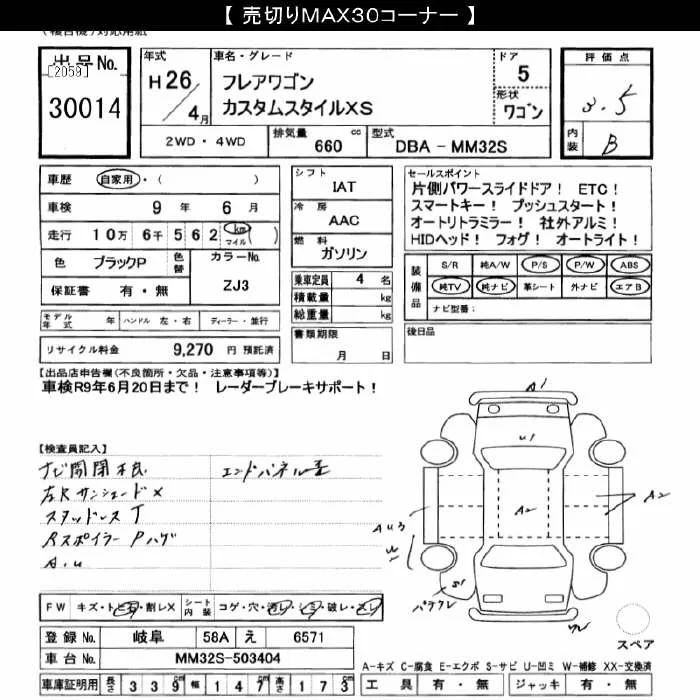 【 売切りMAX30コーナー 】
(複合機)対応用紙
出品No.
[2059]
30014
年式
H26
4月
車名・グレード
フレアワゴン
カスタムスタイルXS
ドア
5
形状
ワゴン
評価点
3.5
内装
B
2WD・4WD
排気量
660 cc
型式
DBA - MM32S
車歴 自家用・( )
車検 9年 6月
走行 10万 6千 5 6 2 km マイル ( )
色 ブラックP 色替 カラーNo.
保証書 有・無 ZJ3
シフト
IAT
冷房
AAC
燃料
ガソリン
乗車定員 4 名
積載量 kg
総重量 kg
セールスポイント
片側パワースライドドア! ETC!
スマートキー! プッシュスタート!
オートリトラミラー! 社外アルミ!
HIDヘッド! フォグ! オートライト!
装備品
S/R 純A/W P/S P/W ABS
純TV 純ナビ 革シート 外ナビ エアB
ナビ型番:
モデル年式 年 ハンドル 左・右 ディーラー・並行
書類期限
月 日
後日品
リサイクル料金 9,270 円 預託済
【出品店申告欄(不良箇所・欠品・注意事項等)】
車検R9年6月20日まで! レーダーブレーキサポート!
【検査員記入】
ナビ開閉不良
エンドパネル歪
左Rサンシェード×
スタッドレスT
RスポイラーPハゲ
A.U
A1
U1
A2
A2
AU3
W
S1
パテクレ
W
スペア
FW キズ・トビ石・割レX シート内装 コゲ・穴・汚レ・シミ・破レ・スレ
登録No. 岐阜 58A え 6571
車台No. MM32S-503404
A-キズ C-腐食 E-エクボ S-サビ U-凹ミ W-補修 XX-交換済
車庫証明用 長さ 3 3 9 cm 幅 1 4 7 cm 高さ 1 7 3 cm
工具 有・無 ジャッキ 有・無